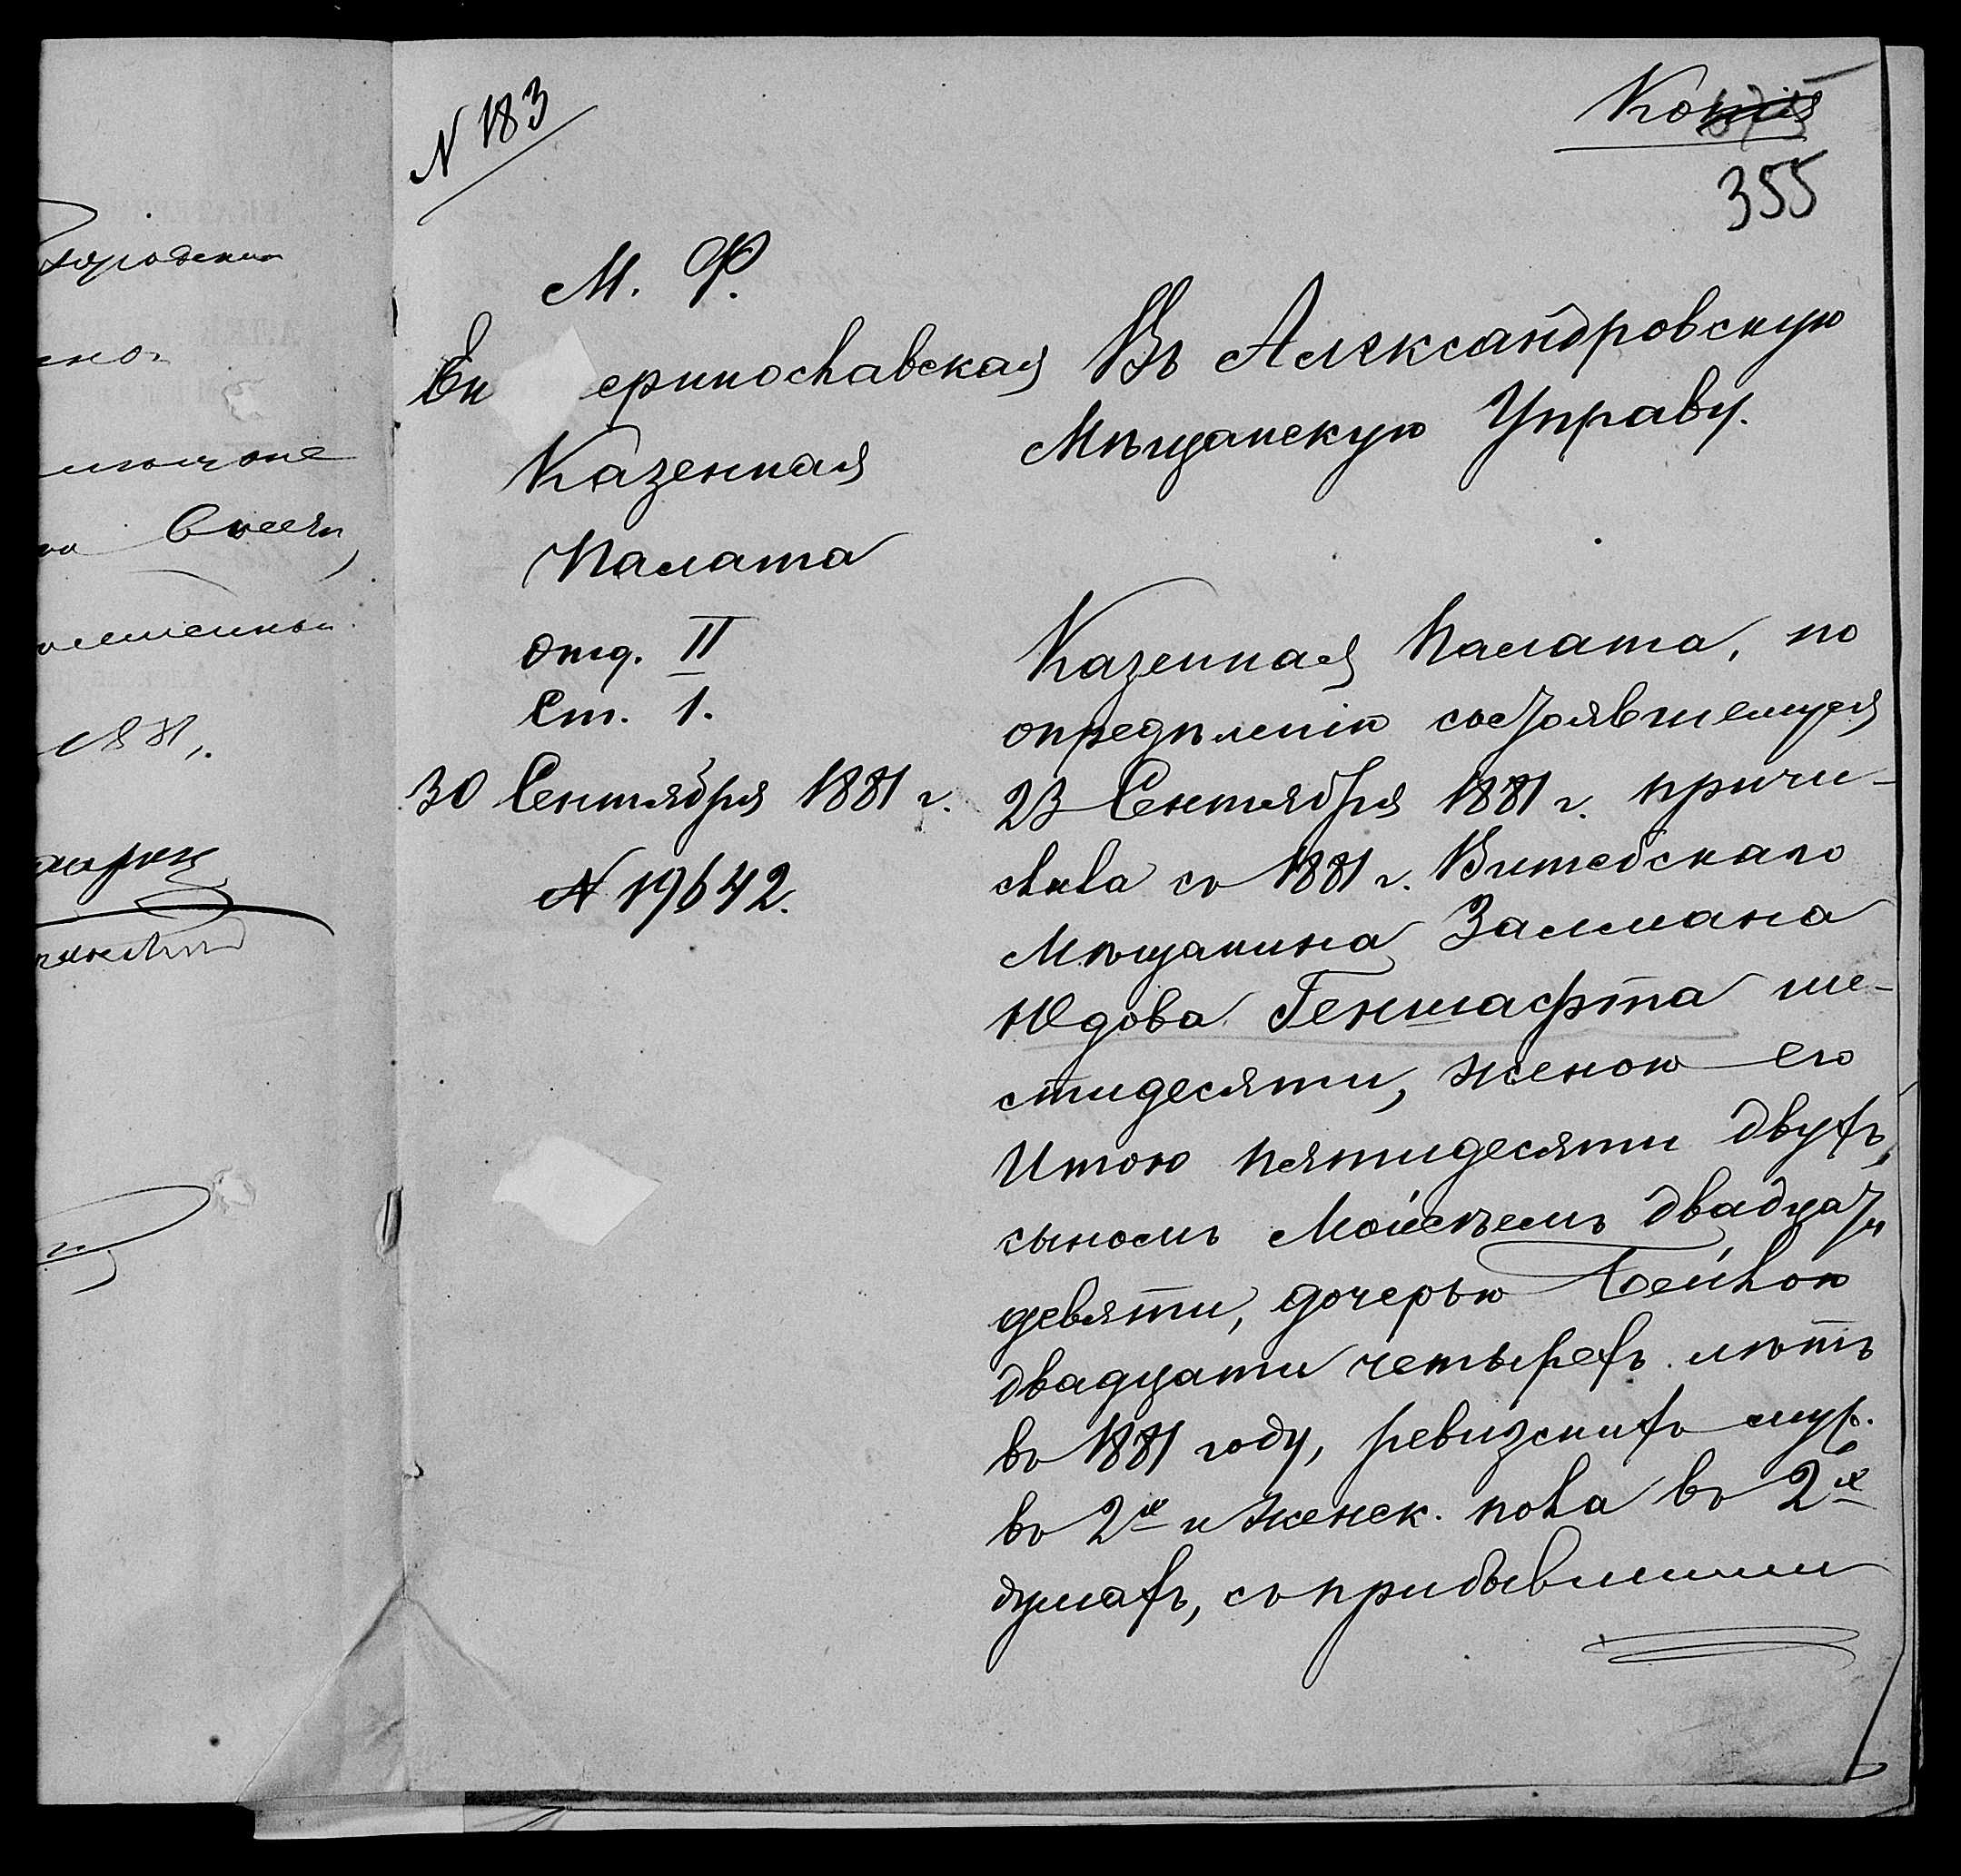 городским
но
вполне
на Василь
1881,
N 183
Копія
355
М. Ф.
Ек еринославская
Казенная
Палата
Отд. II
Ст. 1.
30 Сентября 1881 г.
N 19642.
Въ Александровскую
Мѣщанскую Управу.
Казенная Палата, по
опредѣленію состоявшемуся
23 Сентября 1881 г. причи-
слила съ 1881 г. Витебскаго
Мѣщанина Залмана
Юдова Геншафта ше-
стидесяти, женою его
Итою пятидесяти двухъ,
сыномъ Мойсеемъ двадцати
девяти, дочерью Бейлою
двадцати четырехъ лѣтъ
въ 1881 году, ревизскихъ муж.
въ 2х и женск. пола въ 2х
душахъ, съ прибывшими